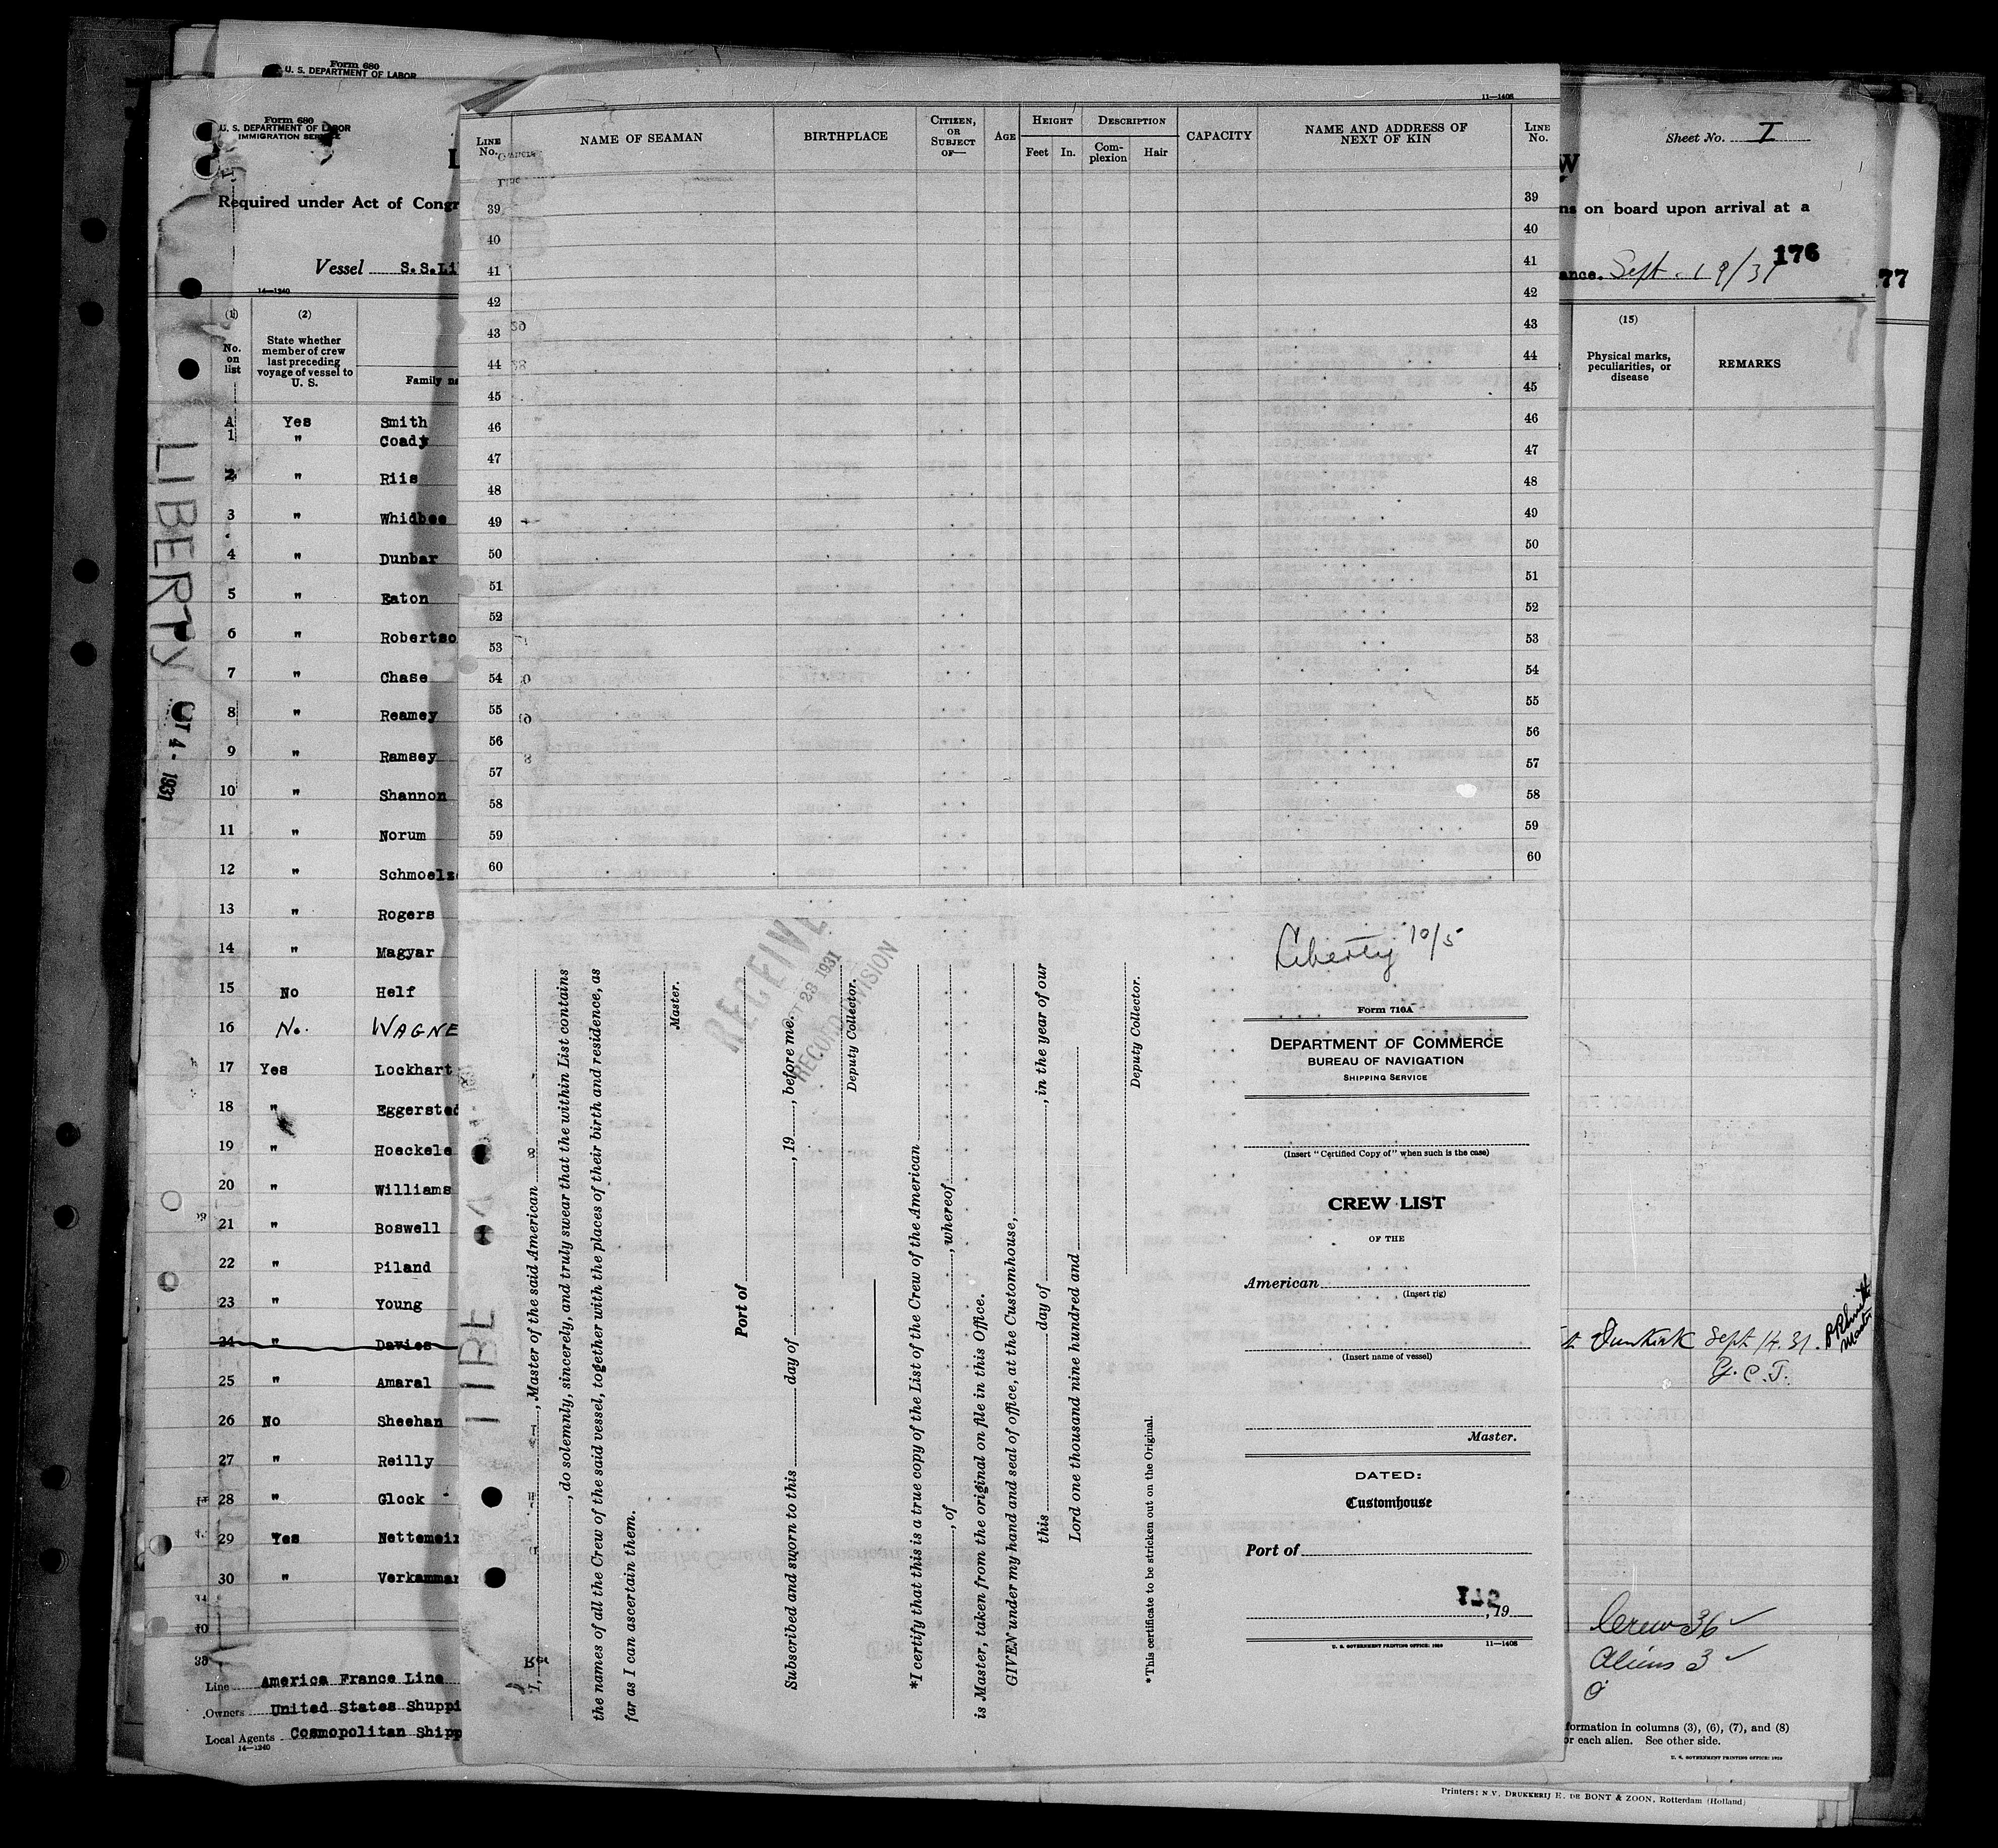 Form 680
U. S. DEPARTMENT OF LABOR
Form 680
U. S. DEPARTMENT OF LABOR
IMMIGRATION SERVICE
L
Required under Act of Congr
Vessel S.S.Li
14—1240
(1) (2)
No. on list
State whether member of crew last preceding voyage of vessel to U. S.
Family na
A Yes Smith
1 " Coady
2 " Riis
3 " Whidbee
4 " Dunbar
5 " Eaton
6 " Robertso
7 " Chase
8 " Reamey
9 " Ramsey
10 " Shannon
11 " Norum
12 " Schmoelz
13 " Rogers
14 " Magyar
15 No Helf
16 No. WAGNE
17 Yes Lockhart
18 " Eggersted
19 " Hoeckele
20 " Williams
21 " Boswell
22 " Piland
23 " Young
24 " Davies
25 " Amaral
26 No Sheehan
27 " Reilly
28 " Glock
29 Yes Nettemeir
30 " Verkammar
Line America France Line
Owners United States Shuppi
Local Agents Cosmopolitan Shipp
14—1240
LIBERTY
OCT 4 - 1931
11—1408
LINE No.
NAME OF SEAMAN
BIRTHPLACE
CITIZEN, OR SUBJECT OF—
AGE
HEIGHT
Feet In.
DESCRIPTION
Complexion Hair
CAPACITY
NAME AND ADDRESS OF NEXT OF KIN
LINE No.
39 39
40 40
41 41
42 42
43 43
44 44
45 45
46 46
47 47
48 48
49 49
50 50
51 51
52 52
53 53
54 54
55 55
56 56
57 57
58 58
59 59
60 60
I, , Master of the said American
, do solemnly, sincerely, and truly swear that the within List contains
the names of all the Crew of the said vessel, together with the places of their birth and residence, as
far as I can ascertain them.
Master.
Port of
Subscribed and sworn to this day of , 19 , before me.
Deputy Collector.
RECEIVE
23 1931
RECORD DIVISION
*I certify that this is a true copy of the List of the Crew of the American
, of , whereof
is Master, taken from the original on file in this Office.
GIVEN under my hand and seal of office, at the Customhouse,
this day of , in the year of our
Lord one thousand nine hundred and
Deputy Collector.
*This certificate to be stricken out on the Original.
LIBE
Liberty 10/5
Form 710A
DEPARTMENT OF COMMERCE
BUREAU OF NAVIGATION
SHIPPING SERVICE
(Insert "Certified Copy of" when such is the case)
CREW LIST
OF THE
American
(Insert rig)
(Insert name of vessel)
Master.
DATED:
Customhouse
Port of
, 19
U. S. GOVERNMENT PRINTING OFFICE: 1930 11—1408
Sheet No. I
W
ns on board upon arrival at a
ance. Sept. 19/31
176
77
(15)
Physical marks, peculiarities, or disease
REMARKS
Dunkirk Sept 14. 31.
Master
Y. C. T.
Crew 36 ✓
Aliens 3 ✓
formation in columns (3), (6), (7), and (8)
or each alien. See other side.
U. S. GOVERNMENT PRINTING OFFICE: 1929
Printers: N.V. DRUKKERIJ E. DE BONT & ZOON, Rotterdam (Holland)